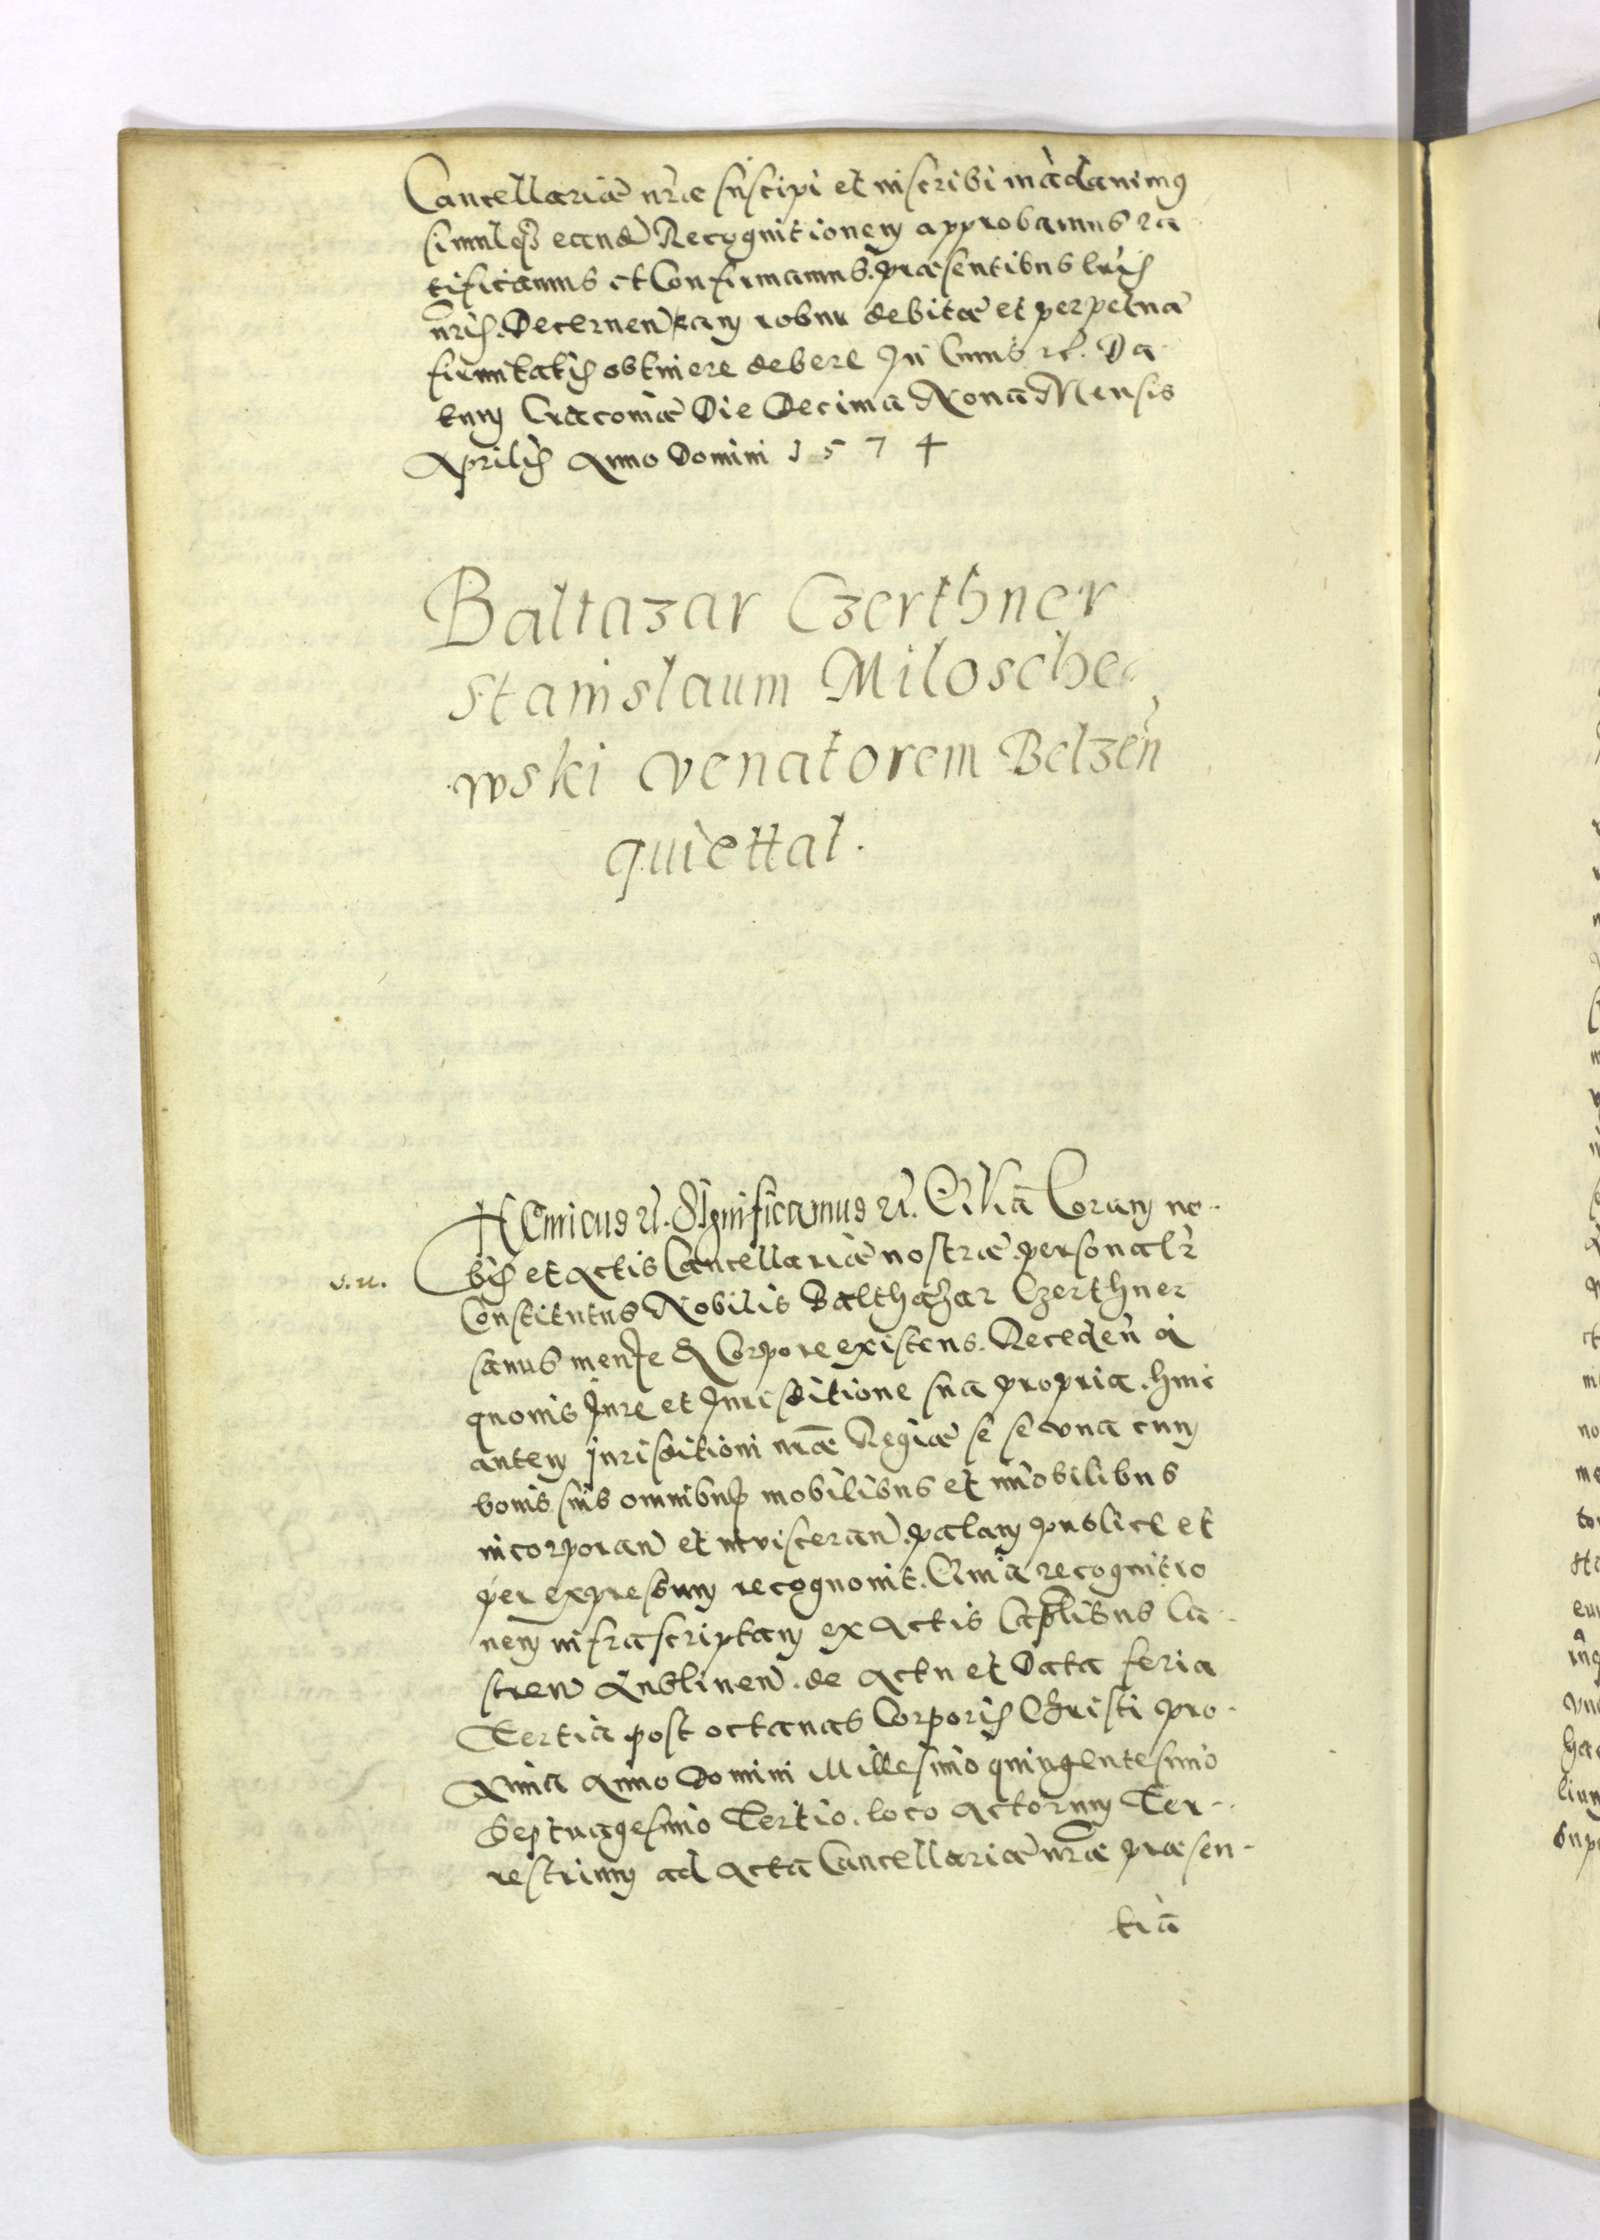 Cancellariæ nrae suscipi et inscribi mãdavimus
simulq3 eandẽ Recognitionem approbamus ra
tificamus et Confirmamus. præsentibus lris
nris. Decernen eam robur debitæ et perpetuæ
firmitatis obtinere debere In Cuius rei. Da
tum Cracoviæ Die Decima Nona Mensis
Aprilis Anno Domini 1574
Baltazar Czerthner
Stanislaum Milosche
wski venatorem Belzeñ
quiettat.
HEnricus rt. SIgnificamus rt. Quia Coram no-
bis et Actis Cancellariæ nostræ personalr
Constitutus Nobilis Balthazar Czerthner
sanus mente & Corpore existens. Receden a
quovis Jure et Jurisditione sua propria. huic
autem Jurisditioni nrae Regiæ se se una cum
bonis suis omnibus mobilibus et imobilibus
incorporan et invisceran. palam publice et
per expressum recognovit. Quia recognitio
nem infrascriptam ex Actis Caplibus Ca-
stren Lublinen. de Actu et Data feria
Tertia post octavas Corporis Christi pro-
xima Anno Domini Millesimo quingentesimo
Septuagesimo Tertio. loco Actorum Ter-
restrium ad Acta Cancellariæ nrae præsen-
tiã